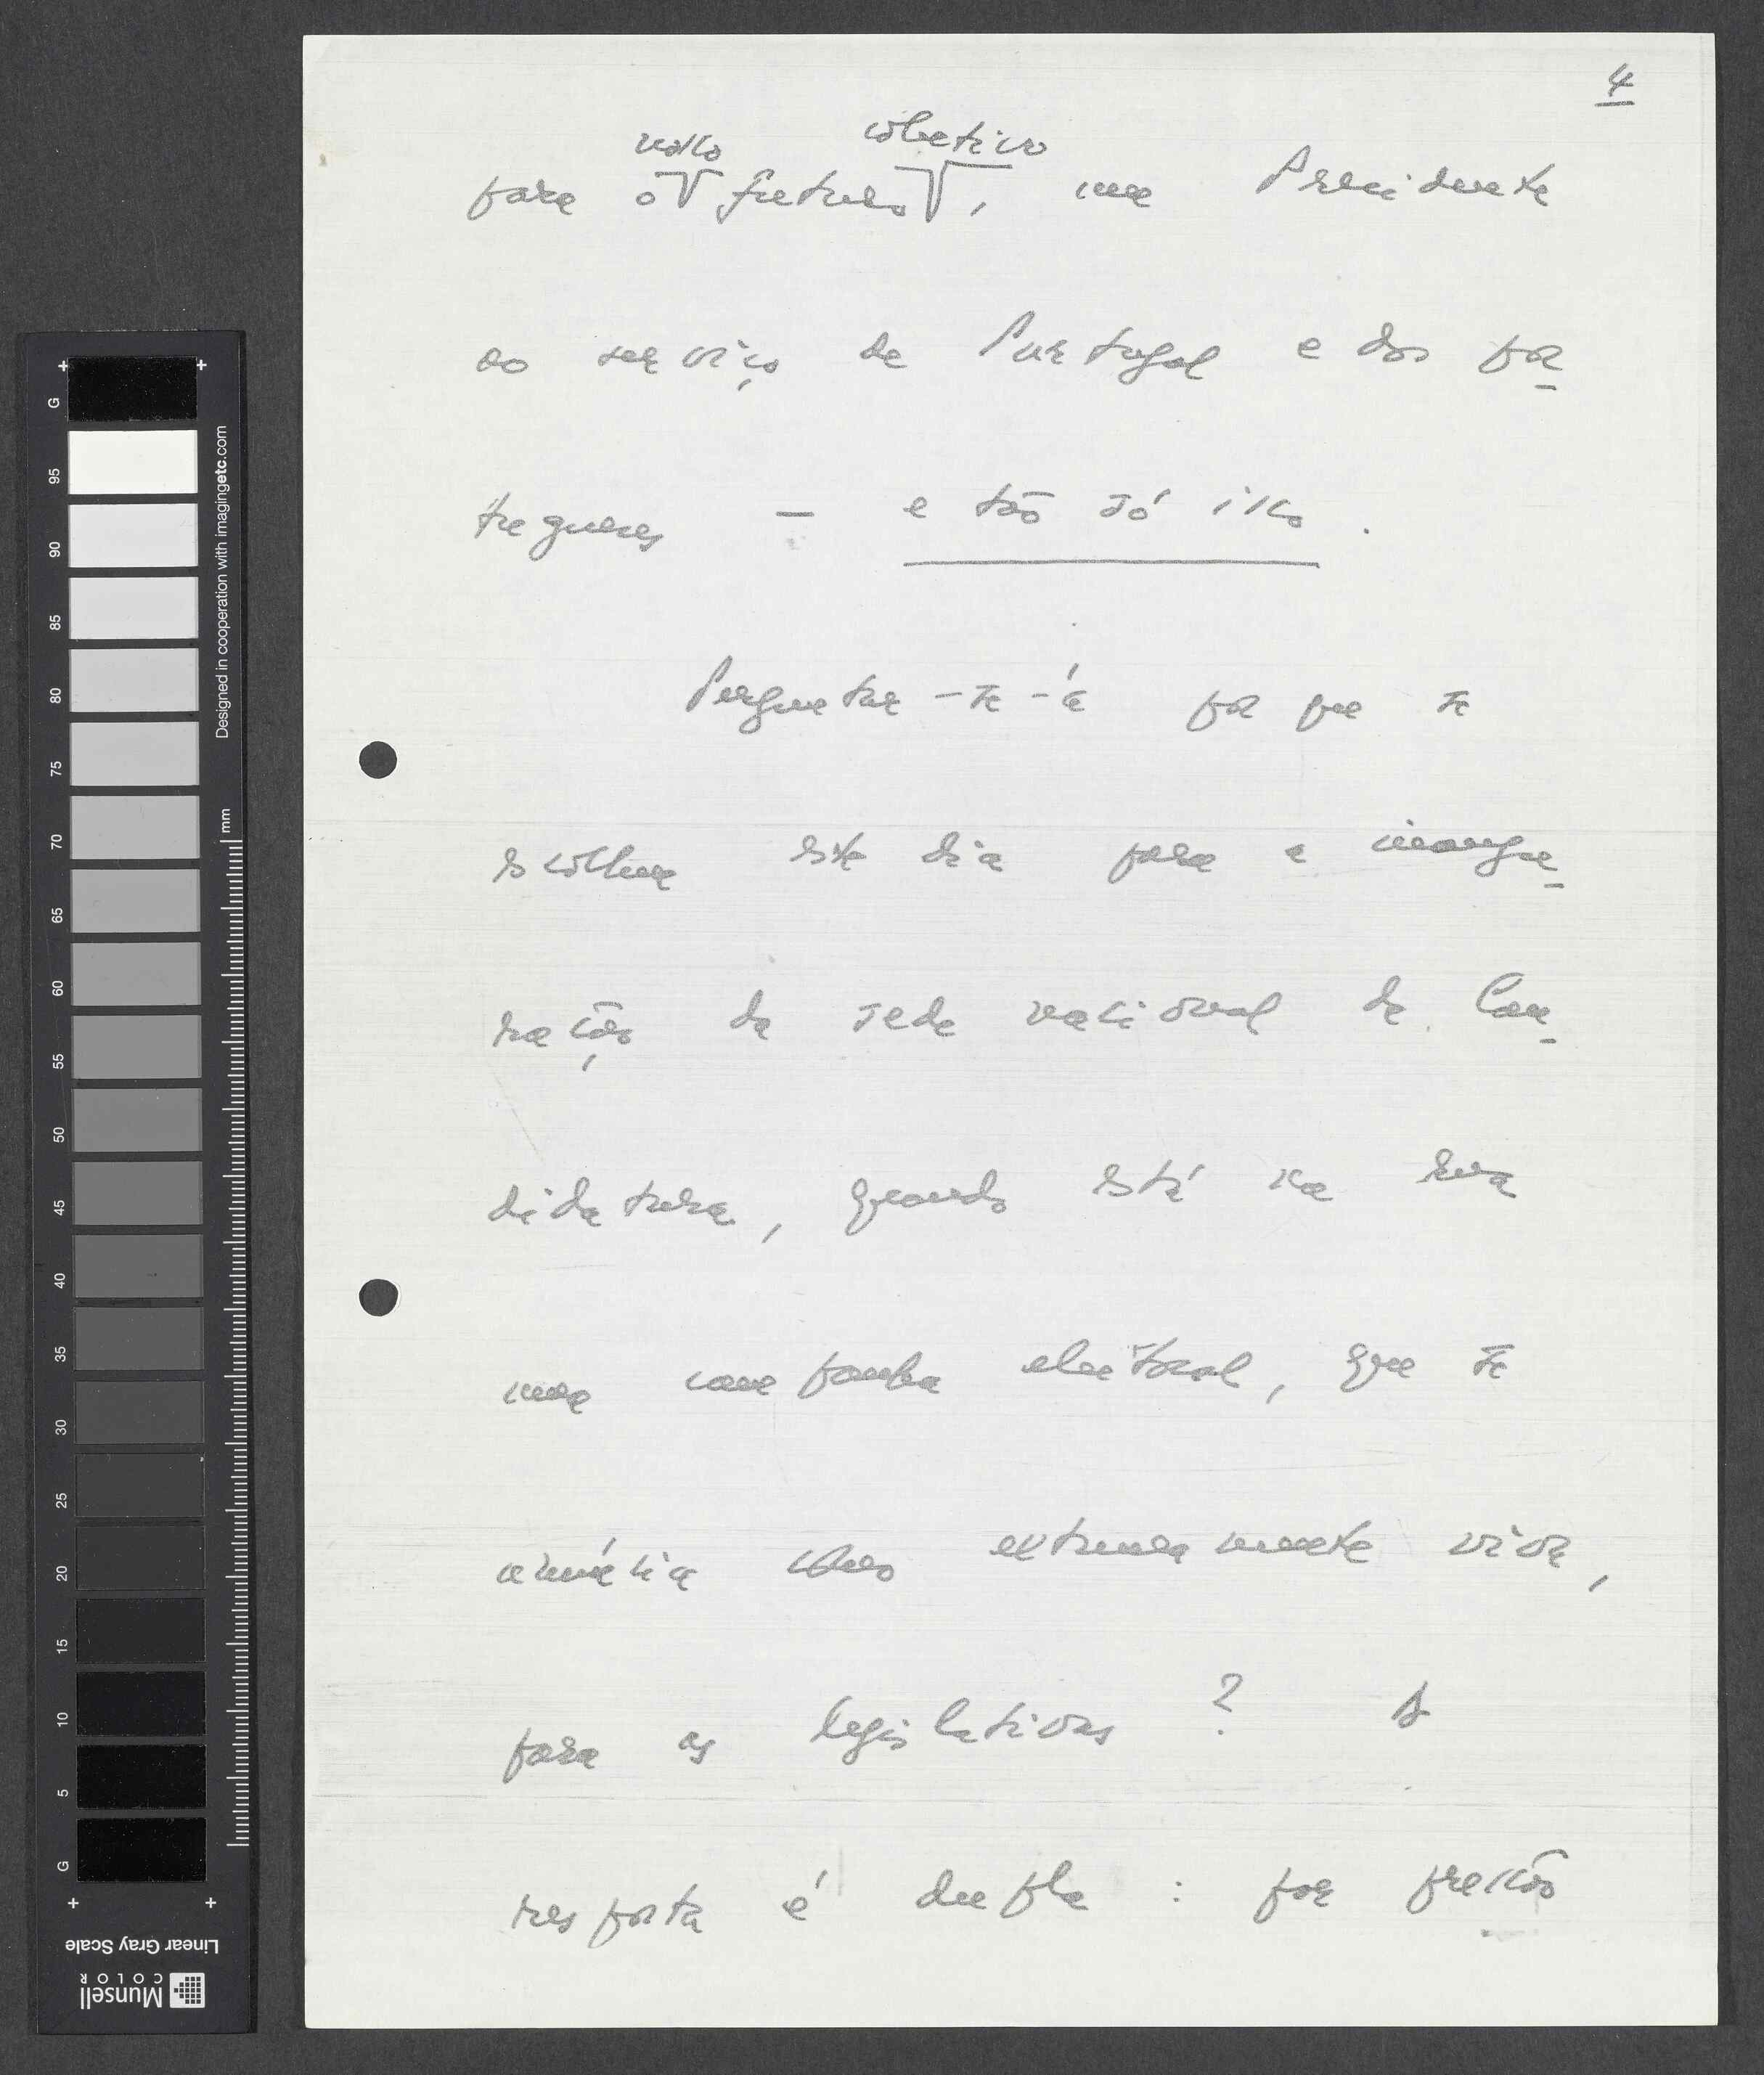 4
nosso coletivo
para o futuro, um Presidente
ao serviço de Portugal e dos por
tugueses - e tão só isso.
Perguntar-se-á por que se
escolheu este dia para a inaugu
ração da sede nacional da Can
didatura, quando está na rua
uma campanha eleitoral, que se
anuncia extremamente viva,
para as legislativas? A
resposta é dupla: por precisão
G
95
90
85
80
75
70
65
60
55
50
45
40
35
30
25
20
15
10
5
G
mm
Designed in cooperation with imagingetc.com
Linear Gray Scale
Munsell
COLOR